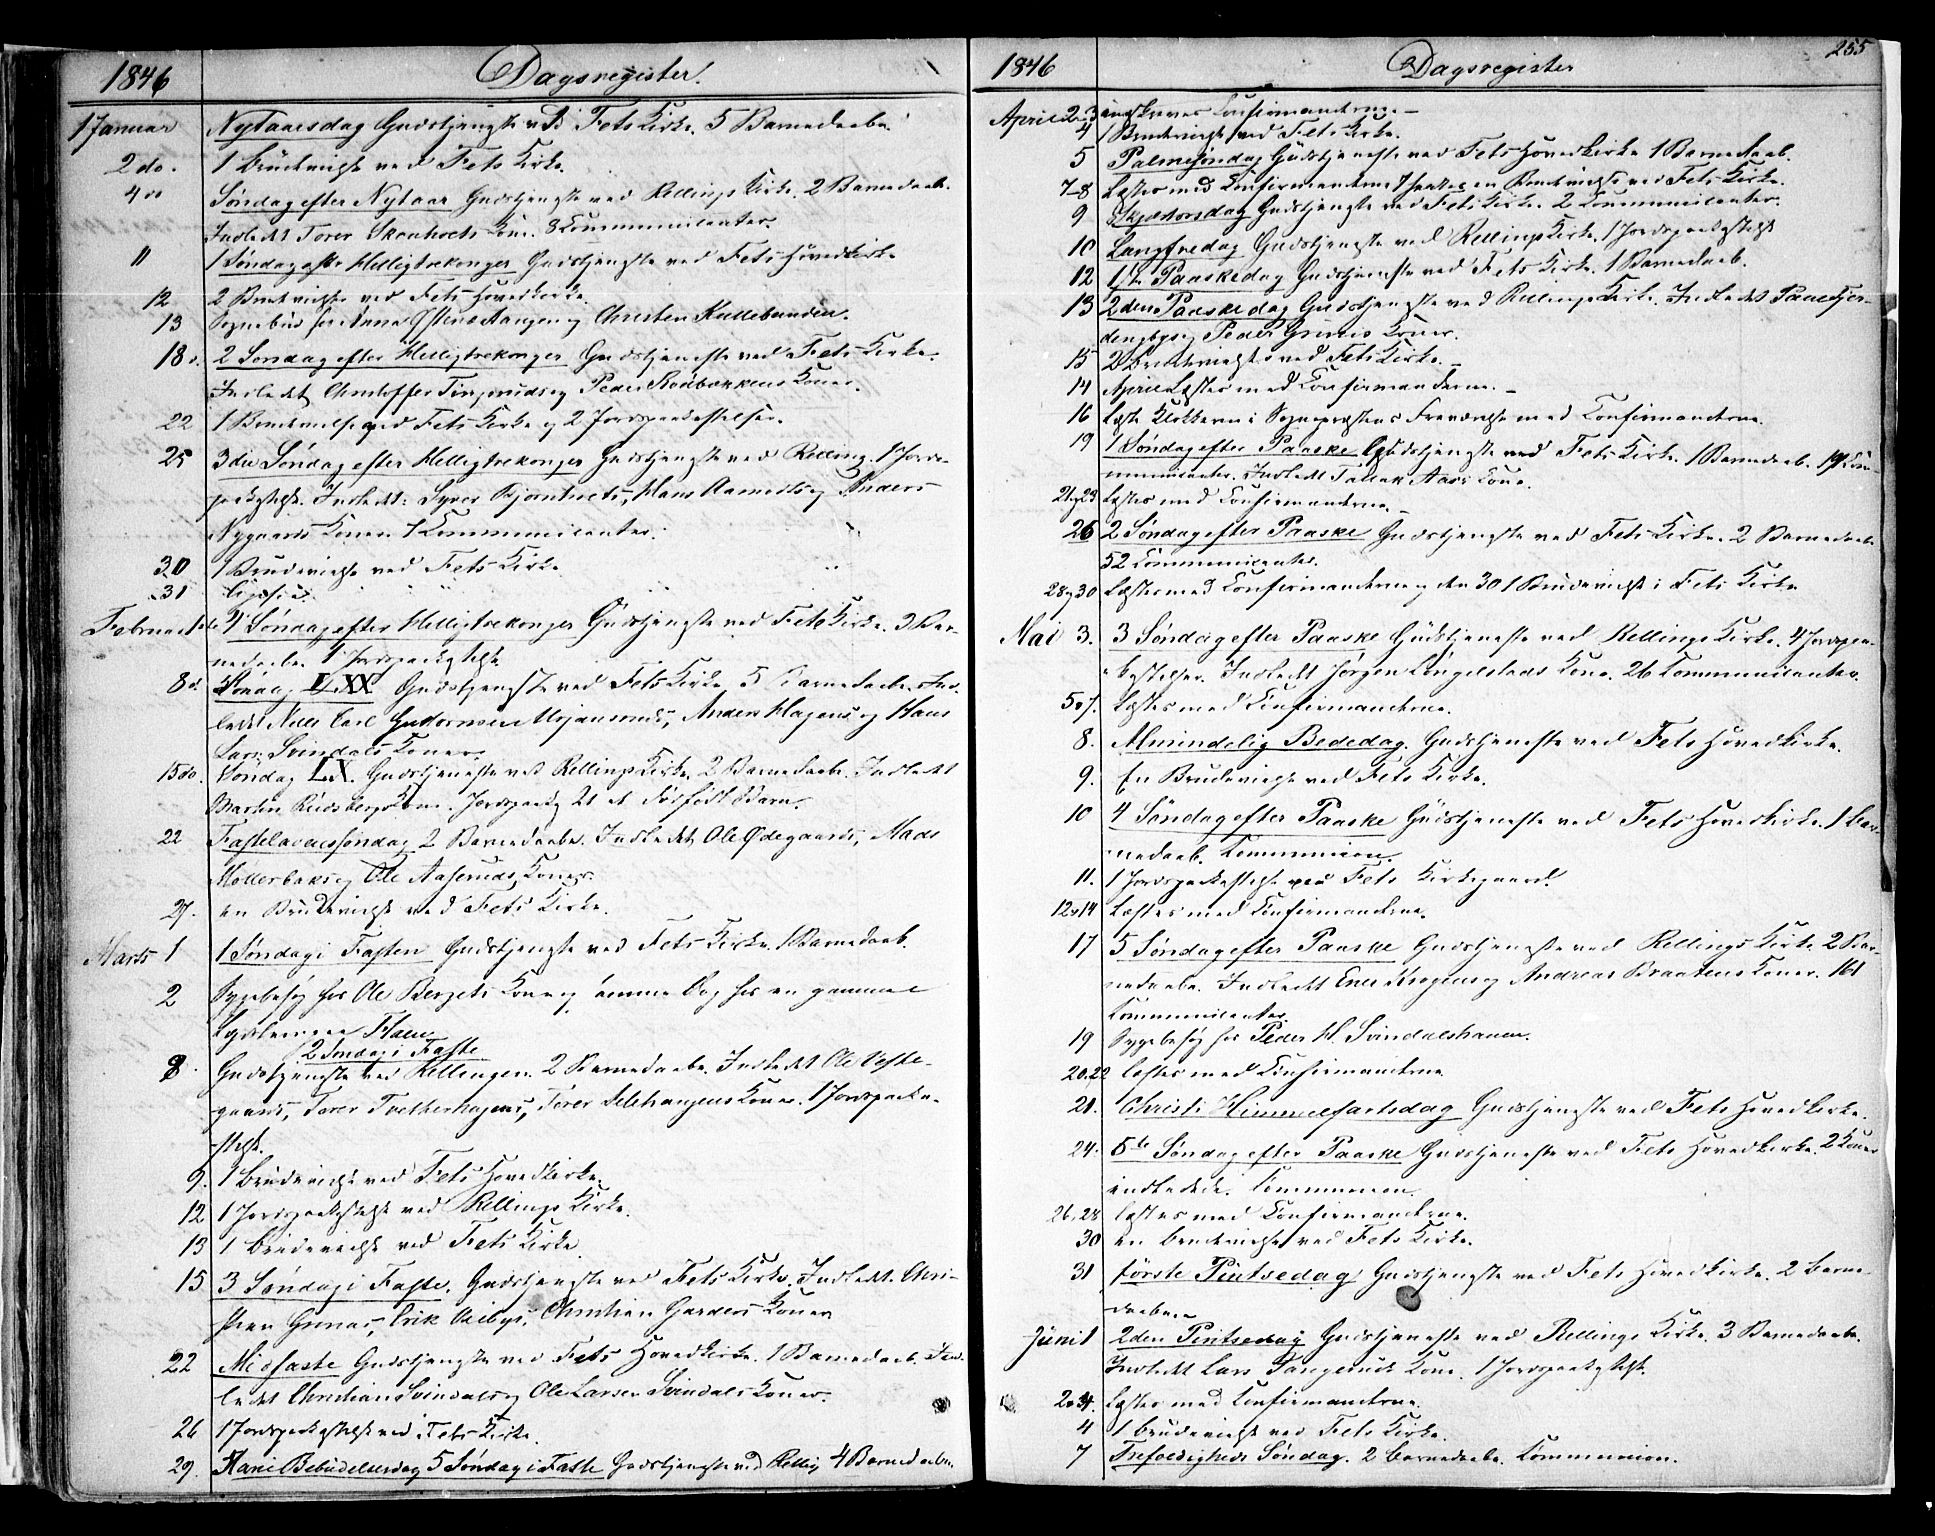 1846 Dagsregister.
1 Januar Nytaarsdag Gudstjeneste ved Fets Kirke. 5 Barnedaabe.
2 do. 1 Brudevielse ved Fets Kirke.
4 do Søndag efter Nytaar Gudstjeneste ved Rellings Kirke. 2 Barnedaab.
Indledt Torer Kone. 8 Kommunicanter.
11 1 Søndag efter Helligtrekonger Gudstjeneste ved Fets Hovedkirke
12 2 Brudevielser ved Fets Hovedkirke.
13 Sognebud for Anna og Christen Kullebunden.
18 d. 2 Søndag efter Helligtrekonger Gudstjeneste ved Fets Kirke.
Indledt Christoffer og Peder Koner.
22 1 Brudevielse ved Fets Kirke og 2 Jordpaakastelser.
25 3die Søndag efter Helligtrekonger Gudstjeneste ved Relling. 1 Jords-
paakastelse. Indledt: Syver Hans Ramstads og Anders
Nygaards Koner. 7 Kommunicanter.
30 1 Brudevielse ved Fets Kirke
31 ligesaa
Februar 1 4 Søndag efter Helligtrekonger Gudstjeneste ved Fets Kirke. 3 Bar-
nedaabe. 1 Jordspaakastelse
8 d. Søndag LXX Gudstjeneste ved Fets Kirke. 5 Barnedaabe. Ind-
ledt Niels Carl Anders Hagens og Hans
Lars. Svindals Koner.
15 do. Søndag LX. Gudstjeneste ved Rellings Kirke. 2 Barnedaabe. Indledt
Martin Kone. Jordspaak. et dødfødt Barn.
22 Fastelavenssøndag 2 Barnedaabe. Indledt Ole Ødegaards, Mads
Møllerbaks og Ole Aaseruds Koner.
27. en Brudevielse ved Fets Kirke.
Marts 1 1 Søndag i Fasten Gudstjeneste ved Fets Kirke. 1 Barnedaab.
2 Sygebesøg hos Ole Bergets Kone og samme Dag hos en gammel
2 Søndag i Faste
8 Gudstjeneste ved Rellingen. 2 Barnedaabe. Indledt Ole Veste-
gaards, Torer Torer Koner. 1 Jordspaaka-
stelse.
9. 1 Brudevielse ved Fets Hovedkirke.
12 1 Jordspaakastelse ved Rellings Kirke.
13 1 Brudevielse ved Fets Kirke
15 3 Søndag i Faste. Gudstjeneste ved Fets Kirke. Indledt. Chri-
stian Erik Christian Garders Koner
22 Midfaste Gudstjeneste ved Fets Hovedkirke. 1 Barnedaab. Ind-
ledt Christian Svindals og Ole Larsen Svindals Koner.
26 1 Jordspaakastelse ved Fets Kirke.
29. Mariæ Bebudelsesdag 5 Søndag i Faste Gudstjeneste ved Relling 4 Barnedaabe.
1846 Dagsregister 255
April 2-3 indskreves Confirmanterne.
4 1 Brudevielse ved Fets Kirke.
5 Palmesøndag Gudstjeneste ved Fets Hovedkirke 1 Barnedaab.
7-8 Læstes med Confirmanterne en Brudevielse ved Fets Kirke.
9 Skjærtorsdag Gudstjeneste ved Fets Kirke. 2 Kommunicanter.
10 Langfredag Gudstjeneste ved Rellings Kirke. 1 Jordspaakastelse
12 1ste Paaskedag Gudstjeneste ved Fets Kirke. 1 Barnedaab.
13 2den Paaskedag Gudstjeneste ved Rellings Kirke. Indledt
og Peder Koner.
15 2 Brudevielser ved Fets Kirke.
14 April Læstes med Confirmanterne.
16 læste Klokkeren i Sognepræstens Fraværelse med Confirmanterne.
19 1 Søndag efter Paaske Gudstjeneste ved Fets Kirke. 1 Barnedaab. 19 Kom-
municanter. Indledt Aass Kone.
21 og 23 Læstes med Confirmanterne.
26 2 Søndag efter Paaske Gudstjeneste ved Fets Kirke. 2 Barnedaabe
52 Kommunicanter.
28 og 30 Læstes med Confirmanterne og den 30 1 Brudevielse i Fets Kirke
Mai 3. 3 Søndag efter Paaske Gudstjeneste ved Rellings Kirke. 4 Jordspaa-
kastelser. Indledt Jørgen Kone. 26 Kommunicanter.
5 o 7. Læstes med Confirmanterne.
8. Almindelig Bededag. Gudstjeneste ved Fets Hovedkirke.
9. En Brudevielse ved Fets Kirke.
10 4 Søndag efter Paaske Gudstjeneste ved Fets Hovedkirke. 1 Bar-
nedaab. Communion.
11. 1 Jordspaakastelse ved Fets Kirkegaard.
12 o 14 Læstes med Confirmanterne.
17 5 Søndag efter Paaske Gudstjeneste ved Rellings Kirke 2 Bar-
nedaabe. Indledt og Andreas Braatens Koner. 161
Kommunicanter.
19 Sygebesøg hos Peder H. Svindalshauen.
20. 22 Læstes med Confirmanterne
21. Christi Himmelfartsdag Gudstjeneste ved Fets Hovedkirke.
24. 6te Søndag efter Paaske Gudstjeneste ved Fets Hovedkirke. 2 Koner
indledede. Communion.
26. 28 læstes med Confirmanterne.
30 en Brudevielse ved Fets Kirke.
31 første Pintsedag Gudstjeneste ved Fets Hovedkirke. 2 Barne-
daabe.
Juni 1 2den Pintsedag Gudstjeneste ved Rellings Kirke. 3 Barnedaabe.
Indledt Lars Kone. 1 Jordspaakastelse.
2 o 4. Læstes med Confirmanterne.
4 1 Brudevielse ved Fets Kirke.
7 Trefoldigheds Søndag. 2 Barnedaabe. Kommunion.